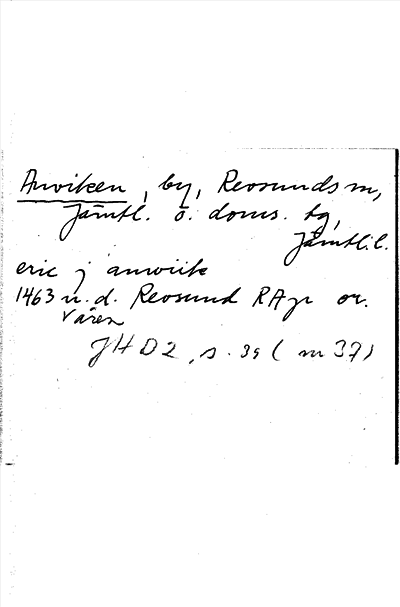 Anviken, by, Revsunds sn,
Jämtl. ö. doms. tg,
Jämtl:l.
eric j anwiik
1463 u. d. Revsund RAp or.
våren
JHD2, s. 39 (nr 37)